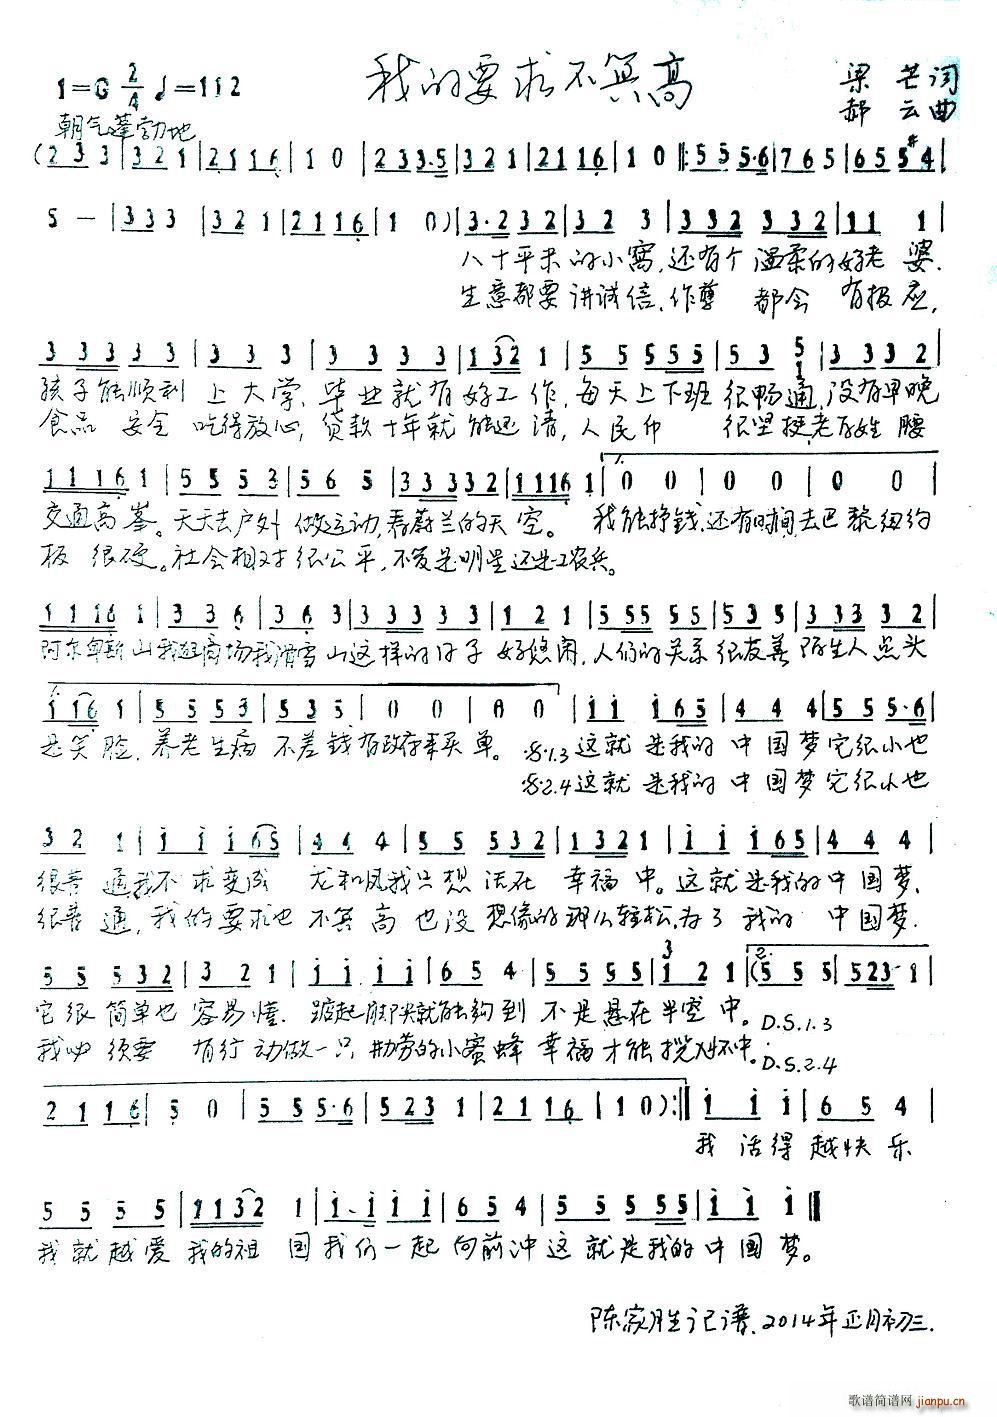 我的要求不算高
1=G 2/4 ♩=112
梁芒词
郝云曲
朝气蓬勃地
(2 3 3 | 3 2 1 | 2 1 1 6 | 1 0 | 2 3 3·5 | 3 2 1 | 2 1 1 6 | 1 0 |: 5 5 5·6 | 7 6 5 | 6 5 5 #4 |
5 — | 3 3 3 | 3 2 1 | 2 1 1 6 | 1 0 ) | 3·2 3 2 | 3 2 3 | 3 3 2 3 3 2 | 1 1 1 |
八十平米的小窝,还有个温柔的好老婆.
生意都要讲诚信,作孽都会有报应,
3 3 3 3 3 | 3 3 3 | 3 3 3 3 | 1 3 2 1 | 5 5 5 5 5 | 5 3 5 1 | 3 3 3 2 |
孩子能顺利上大学,毕业就有好工作,每天上下班很畅通,没有早晚
食品安全吃得放心,贷款十年就能还清,人民币很坚挺,老百姓腰
1 1 1 6 1 | 5 5 5 3 | 5 6 5 | 3 3 3 3 3 2 | 1 1 1 6 1 | 1. 0 0 | 0 0 | 0 0 |
交通高峯。天天去户外做运动,看蔚兰的天空。我能挣钱,还有时间,去巴黎纽约
板很硬。社会相对很公平,不管是明星还是工农兵。
1 1 1 6 1 | 3 3 6 | 3 6 3 | 3 3 3 3 3 | 1 2 1 | 5 5 5 5 5 | 5 3 5 | 3 3 3 3 2 |
阿尔卑斯山我逛商场我滑雪山这样的日子好悠闲,人们的关系很友善陌生人点头
1 1 6 1 | 5 5 5 3 | 5 3 5 | 0 0 | 0 0 | i i i 6 5 | 4 4 4 | 5 5 5·6 |
是笑脸,养老生病不差钱有政府来买单。𝄋.1.3这就是我的中国梦它很小也
𝄋.2.4这就是我的中国梦它很小也
3 2 1 | i i i 6 5 | 4 4 4 | 5 5 5 3 2 | 1 3 2 1 | i i i 6 5 | 4 4 4 |
很普通我不求变成龙和凤我只想活在幸福中。这就是我的中国梦,
很普通,我的要求也不算高也没想像的那么轻松,为了我的中国梦.
5 5 5 3 2 | 3 2 1 | i i i i | 6 5 4 | 5 5 5 5 | 3 i 2 1 | 2. (5 5 5 | 5 2 3 — 1 |
它很简单也容易懂.踮起脚尖就能够到不是悬在半空中。D.S.1.3
我呦须要有行动做一只勤劳的小蜜蜂幸福才能揽入怀中。D.S.2.4
2 1 1 6 | 5 0 | 5 5 5·6 | 5 2 3 1 | 2 1 1 6 | 1 0 ) :| i i i | 6 5 4 |
我活得越快乐
5 5 5 5 | 1 1 3 2 1 | i·i i i | 6 5 4 | 5 5 5 5 5 | i i i ‖
我就越爱我的祖国我们一起向前冲这就是我的中国梦。
陈家胜记谱.2014年正月初三.
歌谱简谱网 jianpu.cn